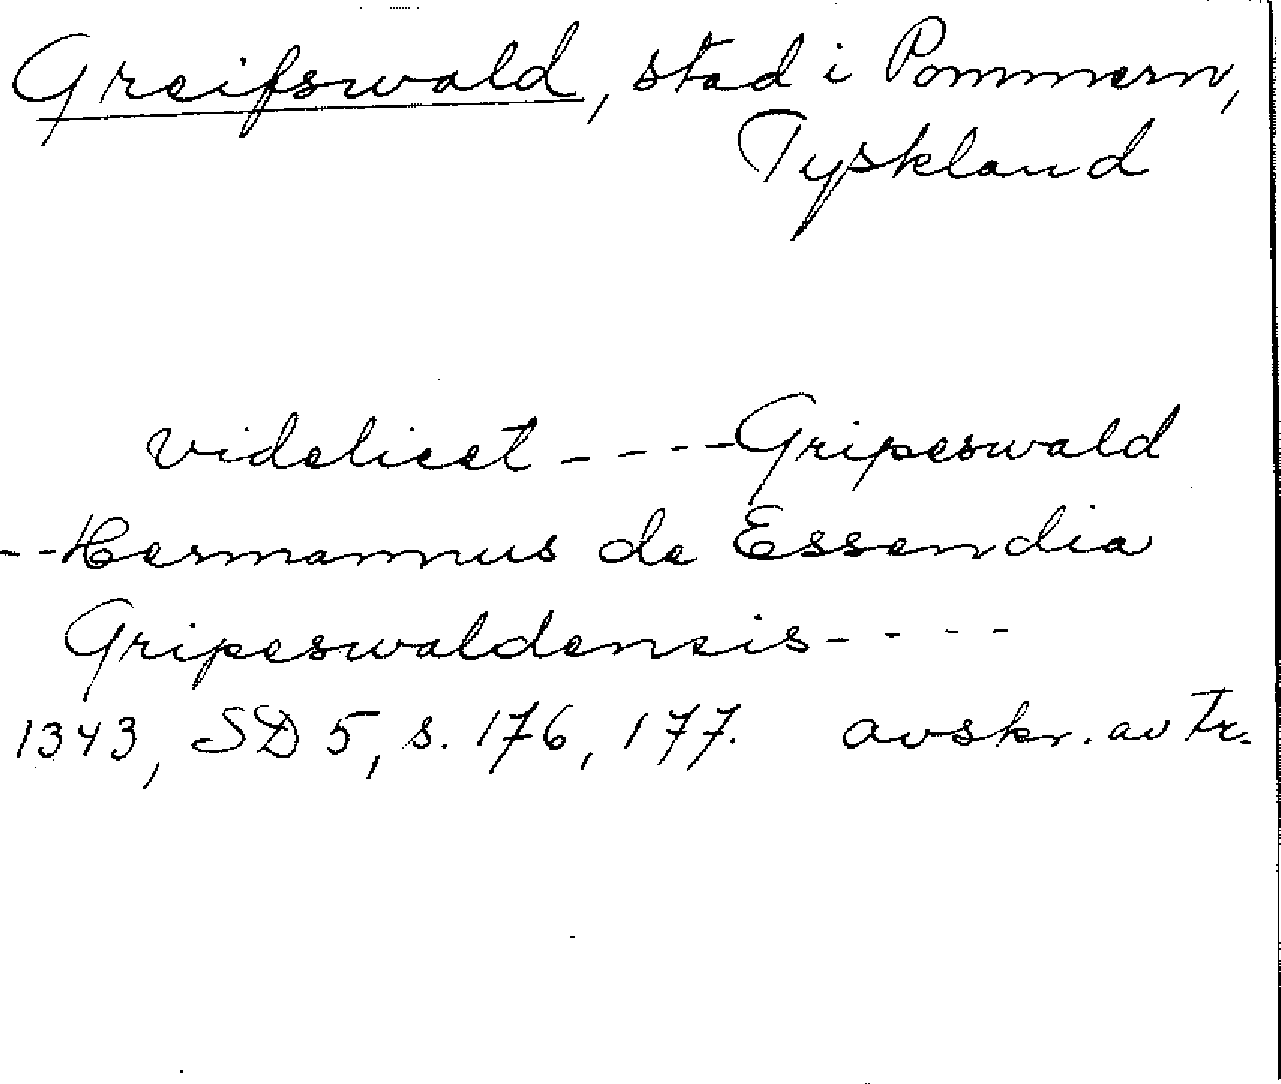 Greifswald, stad i Pommern,
Tyskland
videlicet - - - - Gripeswald
- - Hermannus de Essendia
Gripeswaldensis - - - -
1343, SD 5, s. 176, 177. avskr. av Fr.